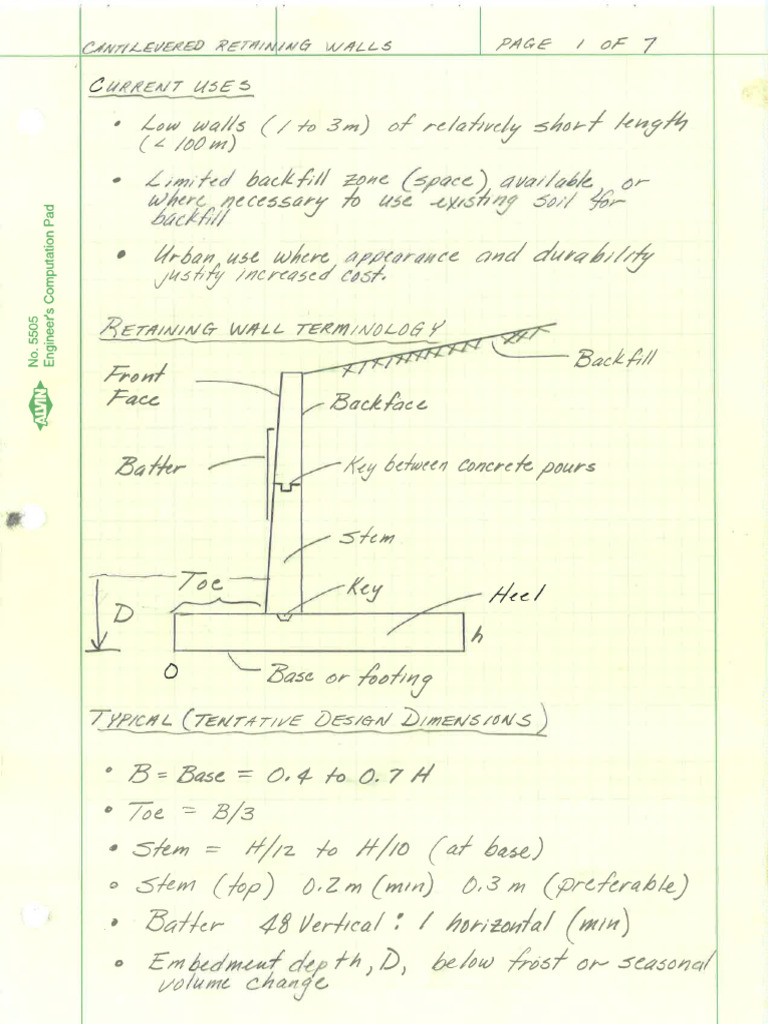 CANTILEVERED RETAINING WALLS PAGE 1 OF 7
CURRENT USES
• Low walls (1 to 3m) of relatively short length
(< 100m)
• Limited backfill zone (space) available, or
where necessary to use existing soil for
backfill
• Urban use where appearance and durability
justify increased cost.
No. 5505
Engineer's Computation Pad
ALVIN
RETAINING WALL TERMINOLOGY
Backfill
Front
Face
Backface
Batter
Key between concrete pours
Stem
Toe
Key
Heel
D
h
O
Base or footing
TYPICAL (TENTATIVE DESIGN DIMENSIONS)
• B = Base = 0.4 to 0.7 H
• Toe = B/3
• Stem = H/12 to H/10 (at base)
• Stem (top) 0.2m (min) 0.3 m (preferable)
• Batter 48 Vertical : 1 horizontal (min)
• Embedment depth, D, below frost or seasonal
volume change